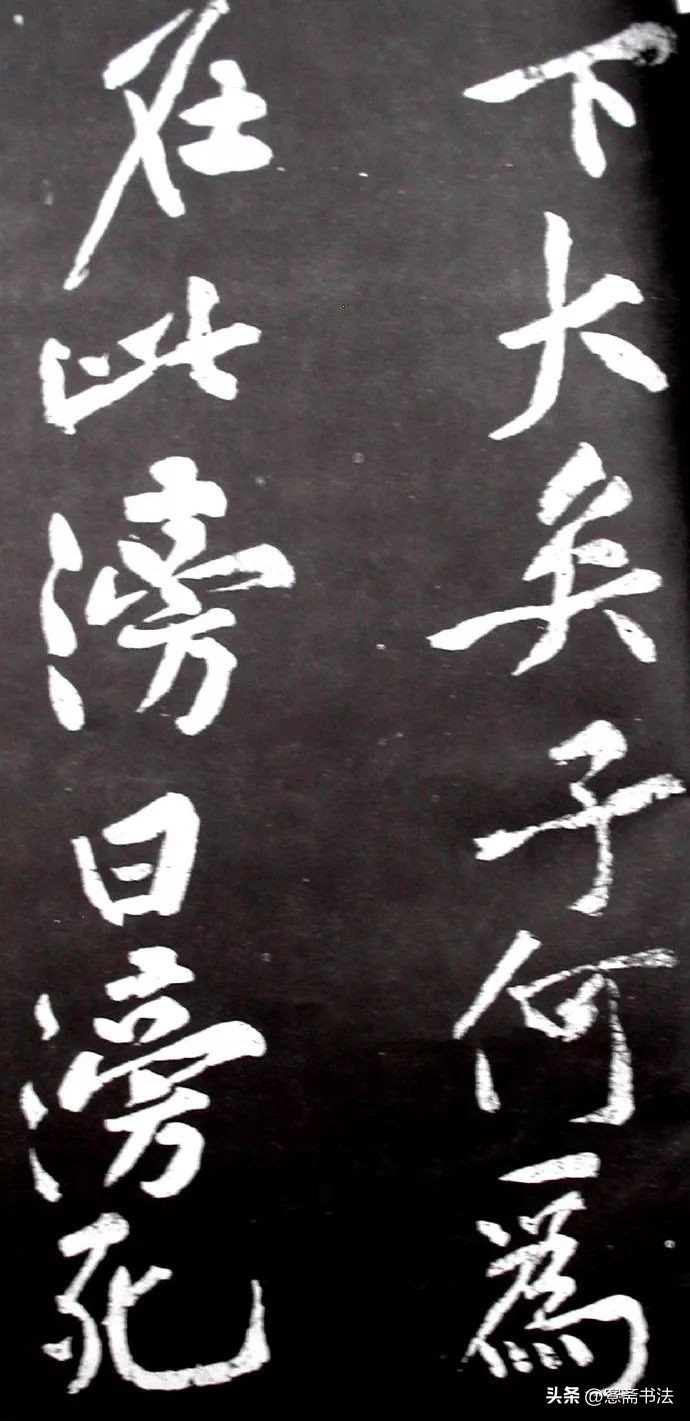 下大矣子何爲
在此滂曰滂死
头条@悫斋书法